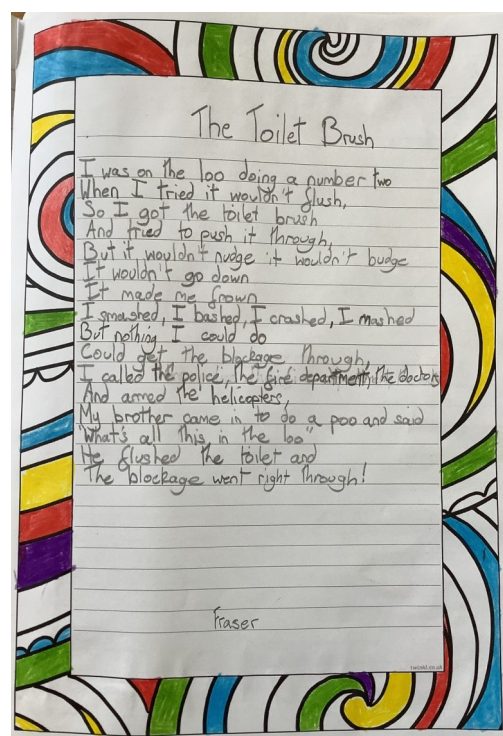 The Toilet Brush
I was on the loo doing a number two
When I tried it wouldn't flush,
So I got the toilet brush
And tried to push it through,
But it wouldn't nudge it wouldn't budge
It wouldn't go down
It made me frown
I smashed, I bashed, I crashed, I mashed
But nothing I could do
Could get the blockage through,
I called the police, the fire department, the doctors
And armed the helicopters,
My brother came in to do a poo and said
"What's all this in the loo"
He flushed the toilet and
The blockage went right through!
Fraser
twinkl.co.uk